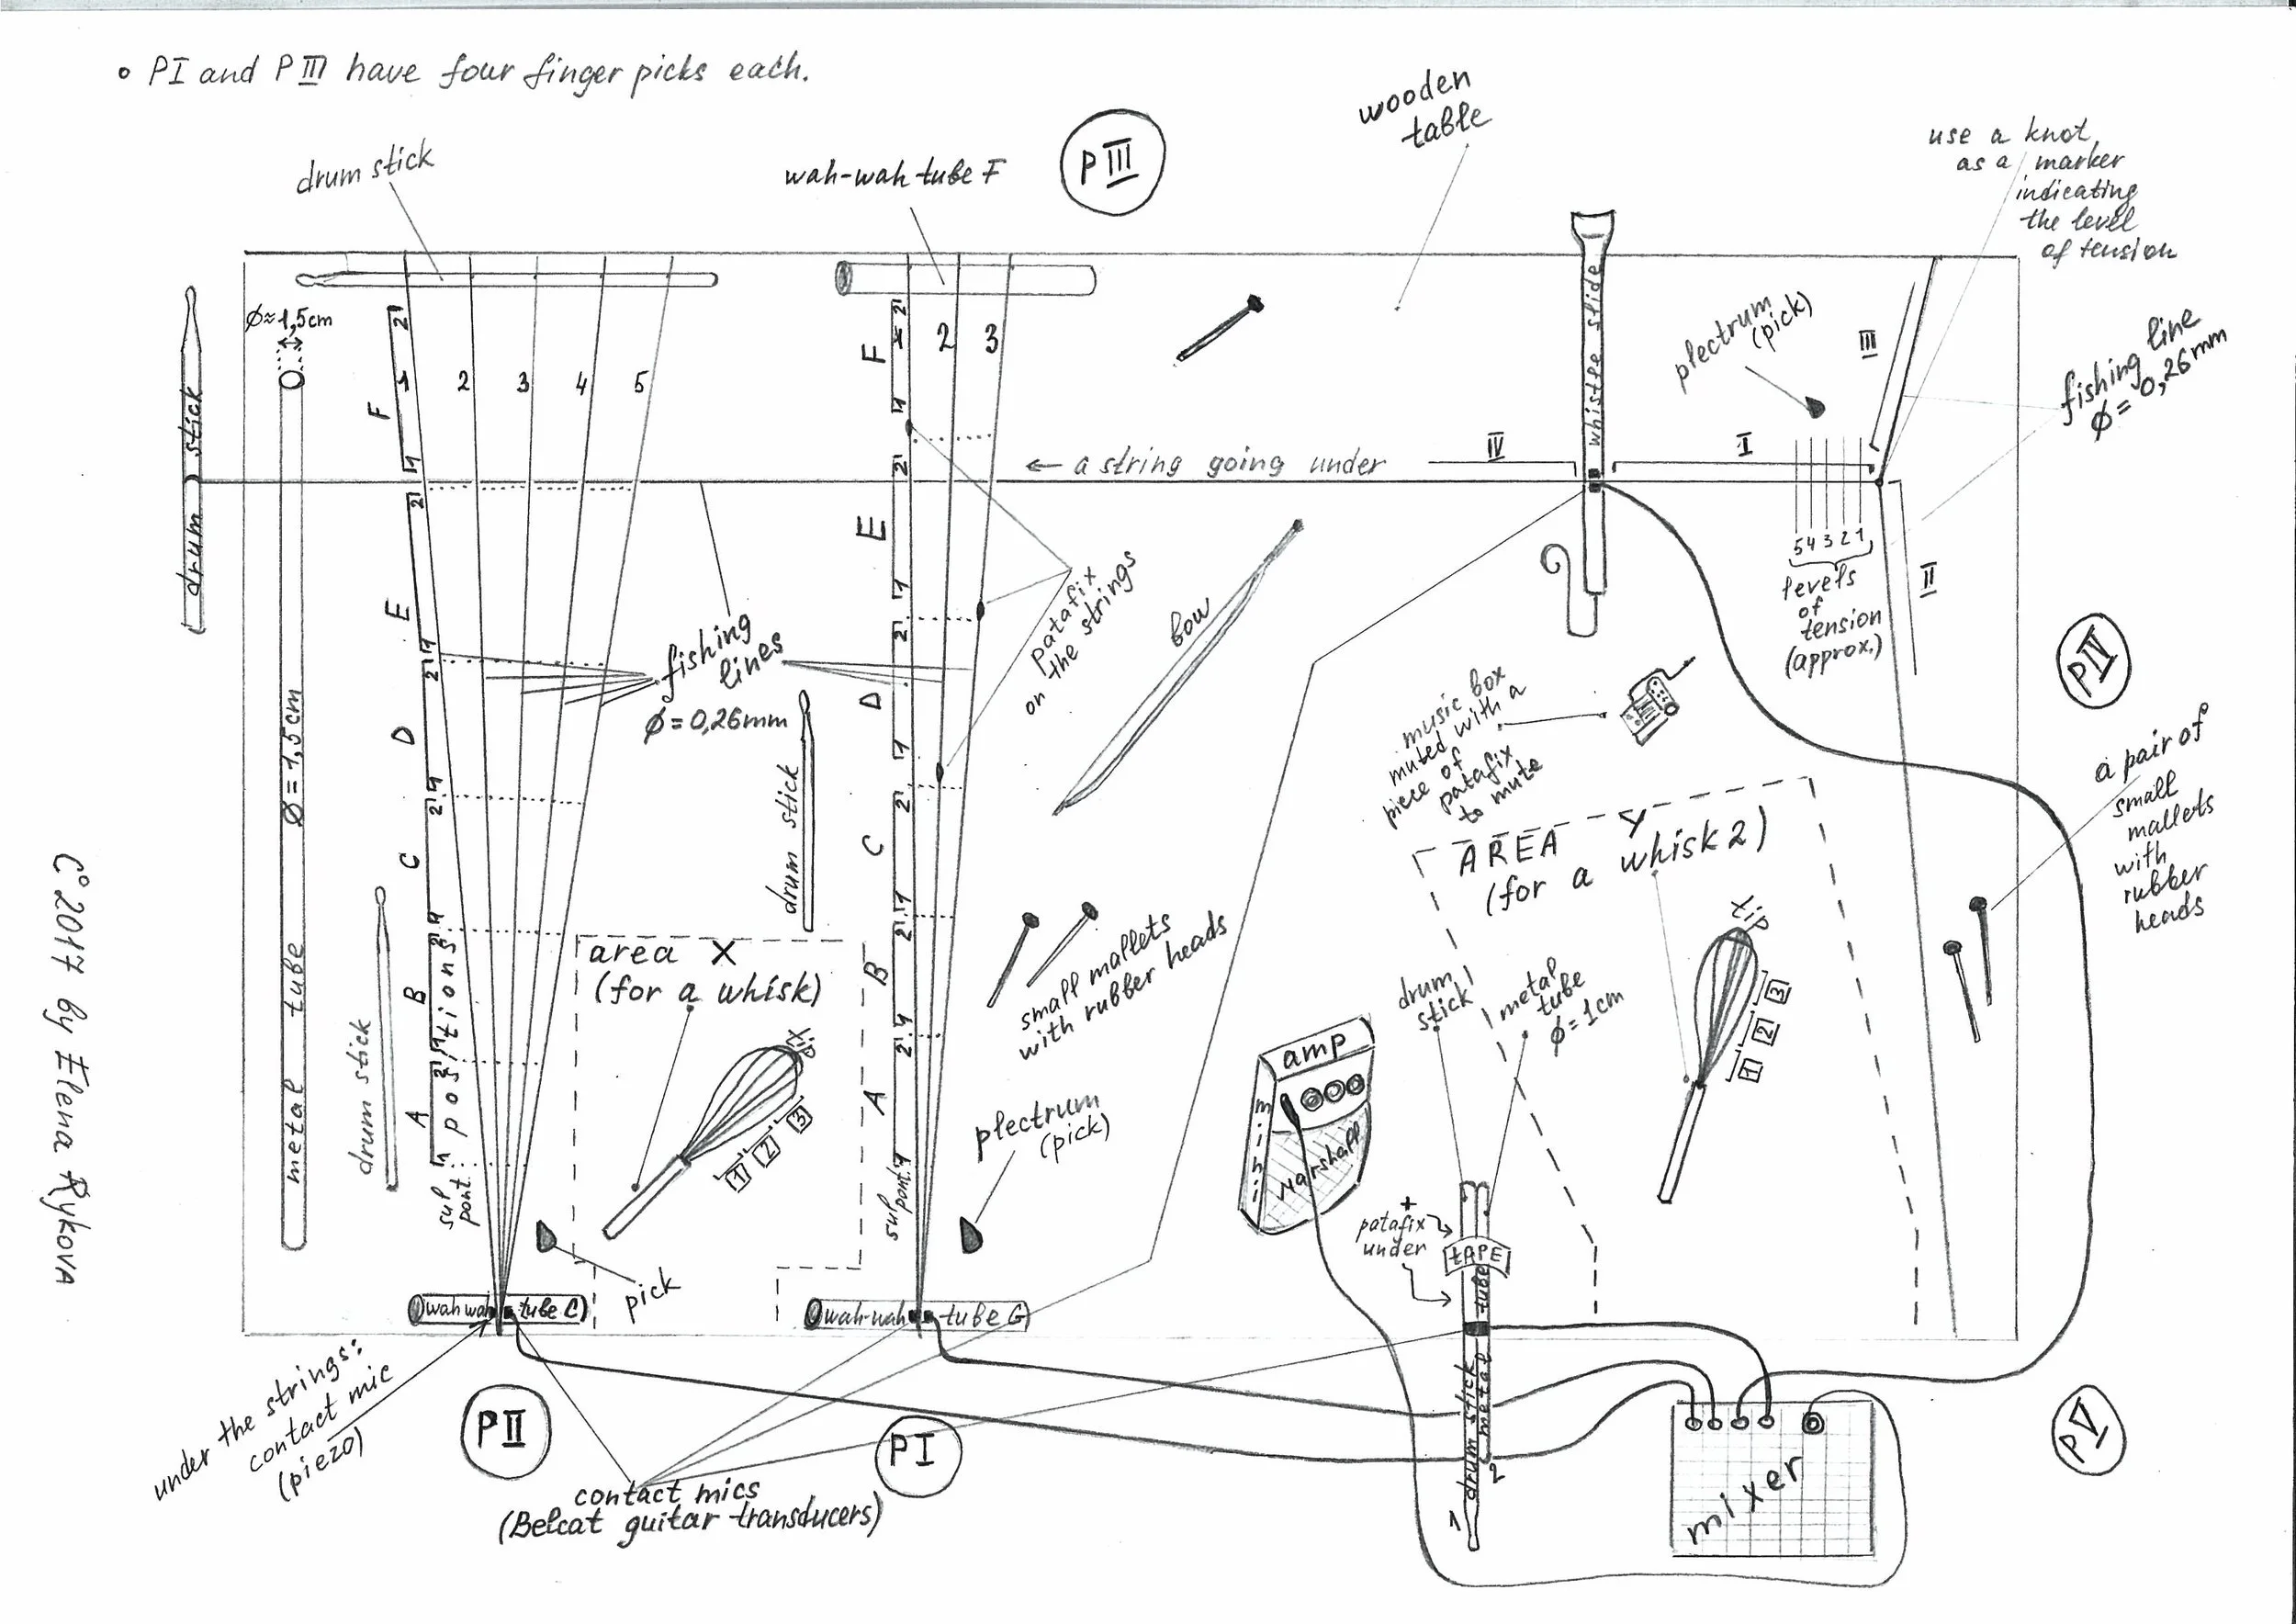 • PI and PIII have four finger picks each.
drum stick
wah-wah tube F
PIII
wooden
table
use a knot
as a marker
indicating
the level
of tension
ø≈1,5cm
drum stick
F
2
1
1
2
3
4
5
F
2
1
1
2
3
whistle slide
plectrum
(pick)
III
fishing line
ø = 0,26mm
← a string going under
IV
I
E
2
1
E
2
1
5 4 3 2 1
levels
of
tension
(approx.)
II
PIV
patafix
on the strings
bow
fishing
lines
ø = 0,26mm
D
2
1
D
2
1
drum stick
music box
muted with a
piece of
patafix
to mute
a pair of
small
mallets
with
rubber
heads
metal tube ø = 1,5cm
C
2
1
C
2
1
AREA Y
(for a whisk 2)
tip
1
2
3
area X
(for a whisk)
tip
1
2
3
B
2
1
B
2
1
small mallets
with rubber heads
drum
stick
metal
tube
ø = 1cm
drum stick
A
2
1
positions
sul
pont.
A
2
1
sul
pont.
plectrum
(pick)
amp
mini
Marshall
+
patafix
under
tAPE
pick
wah wah tube C
wah-wah tube G
drum stick
metal tube
1
2
under the strings:
contact mic
(piezo)
PII
PI
PV
contact mics
(Belcat guitar transducers)
mixer
C° 2017 by Elena Rykova